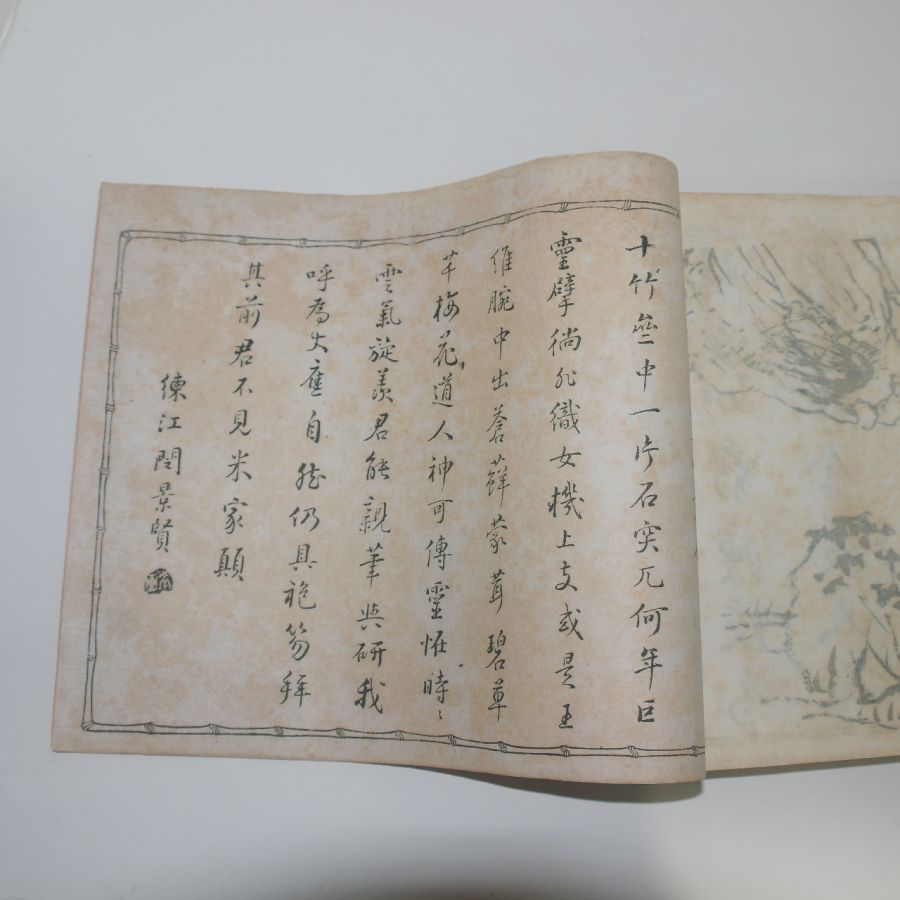 十竹齋中一片石突兀何年巨
靈擘徜非織女機上支或是王
維腕中出蒼蘚蒙茸碧草
芊梅花道人神可傳靈恠時〻
雲氣旋羨君能親筆與研我
呼為丈應自然仍具袍笏拜
其前君不見米家顛
練江閔景賢